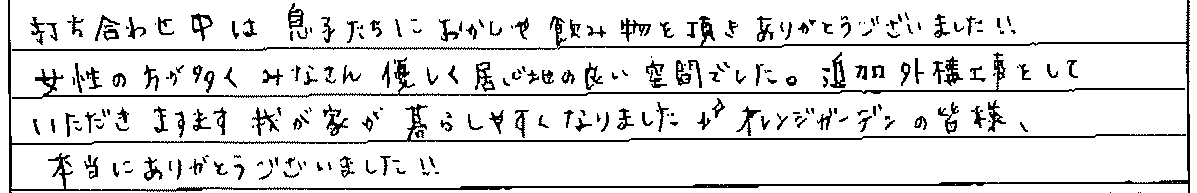 打ち合わせ中は 息子たちに おかしや 飲み物を頂き ありがとうございました!!
女性の方が多く みなさん 優しく 居心地の良い 空間でした。追加外構工事をして
いただき ますます 我が家が 暮らしやすくなりました♪ オレンジガーデンの皆様、
本当にありがとうございました!!